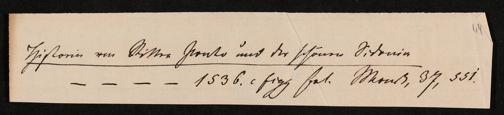 Historia von Ritter Ponto und der schönen Sidonia
— — — — 1536. c figg fol. Mone's, 37, 551.